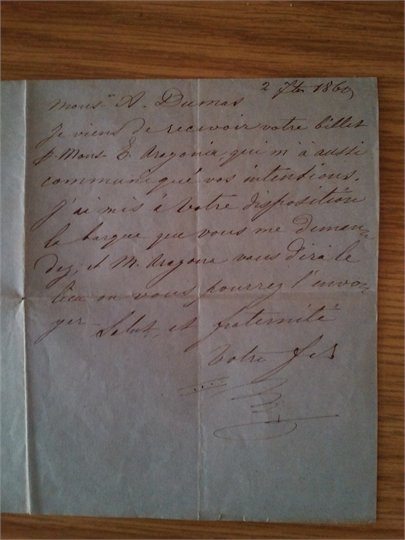 2 7bre 1860
Monsr A. Dumas
Je viens de recevoir votre billet
p Monsr E Aragonia, qui m'a aussi
communiqué vos intensions.
J'ai mis à votre disposition
la barque que vous me deman-
dez, et Mr Aragona vous dira le
lieu ou vous pourrez l'envo-
yer Salut, et fraternité
Votre